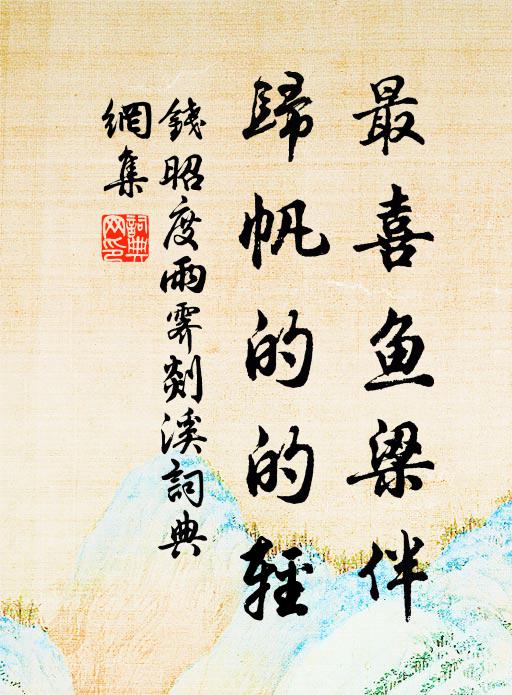 最喜鱼梁伴
歸帆的的輕
錢昭度雨霁剡溪詞典
網集
詞典
网印